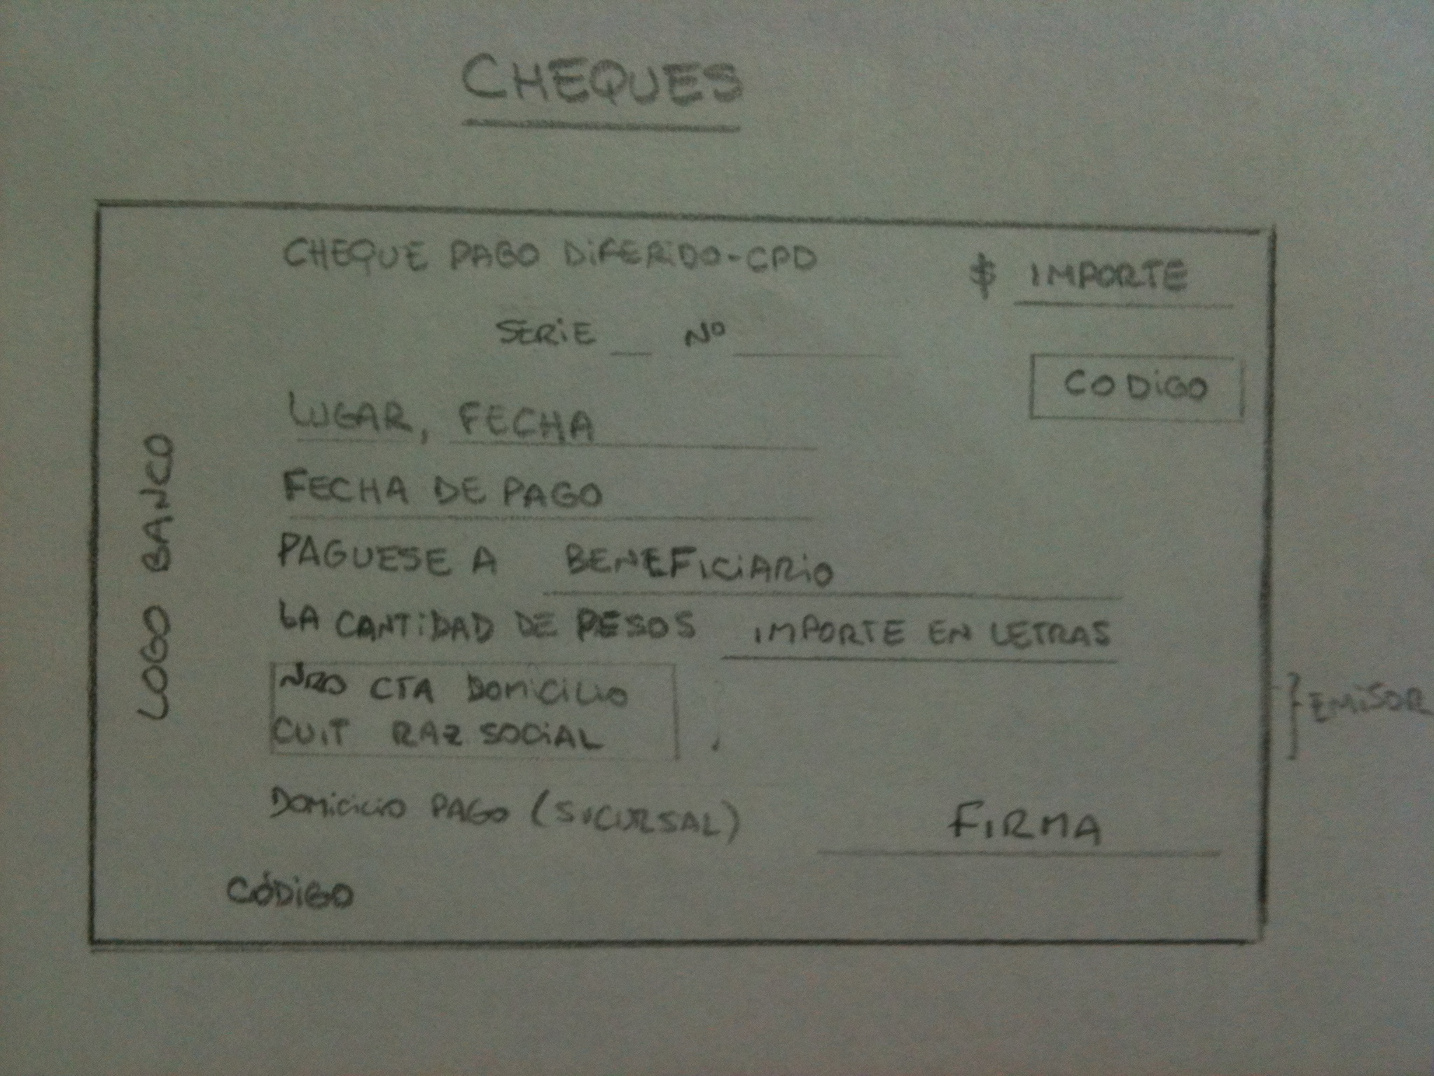 CHEQUES
CHEQUE PAGO DIFERIDO-CPD
$ IMPORTE
SERIE __ Nº
CODIGO
LUGAR, FECHA
FECHA DE PAGO
PAGUESE A BENEFICIARIO
LA CANTIDAD DE PESOS IMPORTE EN LETRAS
NRO CTA DOMICILIO
CUIT RAZ SOCIAL
EMISOR
DOMICICIO PAGO (SUCURSAL)
FIRMA
CÓDIGO
LOGO BANCO